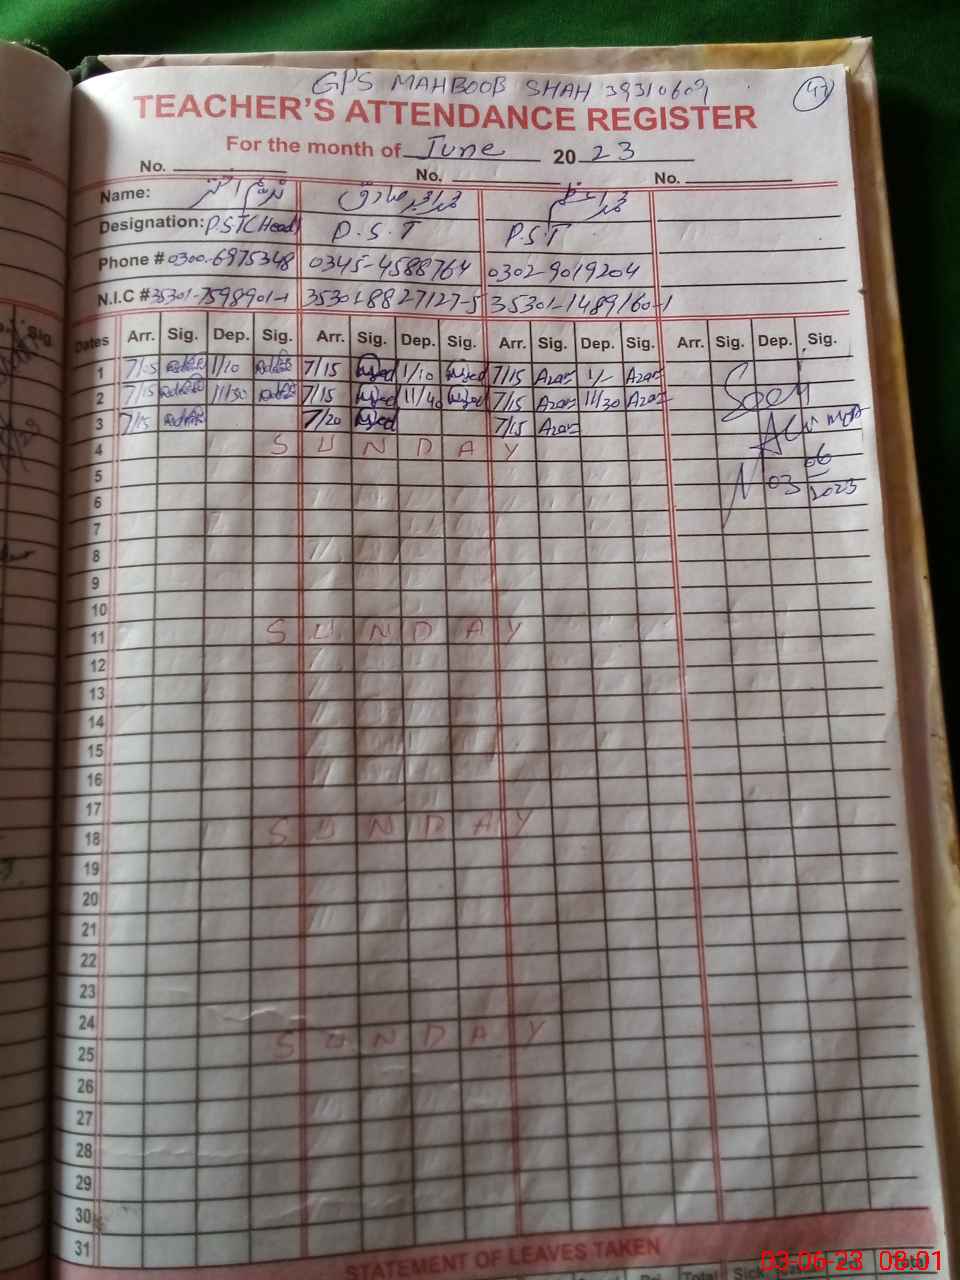 GPS MAHBOOB SHAH 39310609 47
TEACHER'S ATTENDANCE REGISTER
For the month of June 2023
No. No. No.
Name:
Designation: P.S.T(Head) P.S.T P.S.T
Phone # 0300-6975348 0345-4588764 0302-9019204
N.I.C # 35301-7598901-1 35301-8827127-5 35301-1489160-1
Dates Arr. Sig. Dep. Sig. Arr. Sig. Dep. Sig. Arr. Sig. Dep. Sig. Arr. Sig. Dep. Sig.
1 7/05 1/10 7/15 1/10 7/15 Azam 1/- Azam
2 7/15 11/30 7/15 11/40 7/15 Azam 11/30 Azam
3 7/15 7/20 7/15 Azam
4 SUNDAY
5
6
7
8
9
10
11 SUNDAY
12
13
14
15
16
17
18 SUNDAY
19
20
21
22
23
24
25 SUNDAY
26
27
28
29
30
31
Seen
03 06 2023
STATEMENT OF LEAVES TAKEN
Total Sick Total
03-06-23 08:01